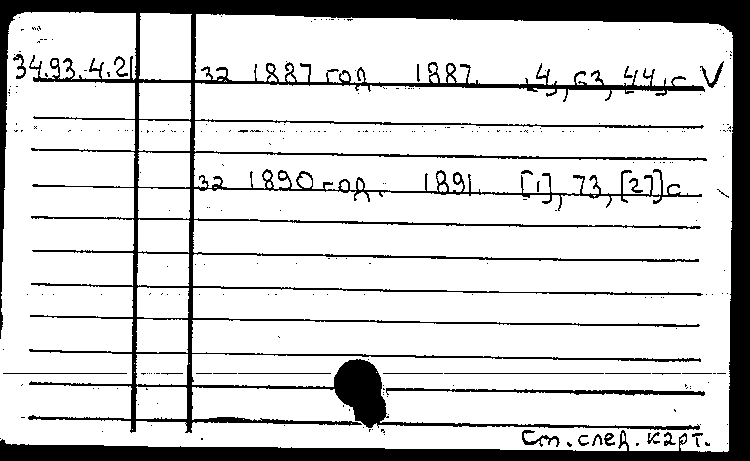 34.93.4.21 за 1887 год. 1887. [4], 63, 44 с V
за 1890 год. 1891. [1], 73, [27] с
См. след. карт.